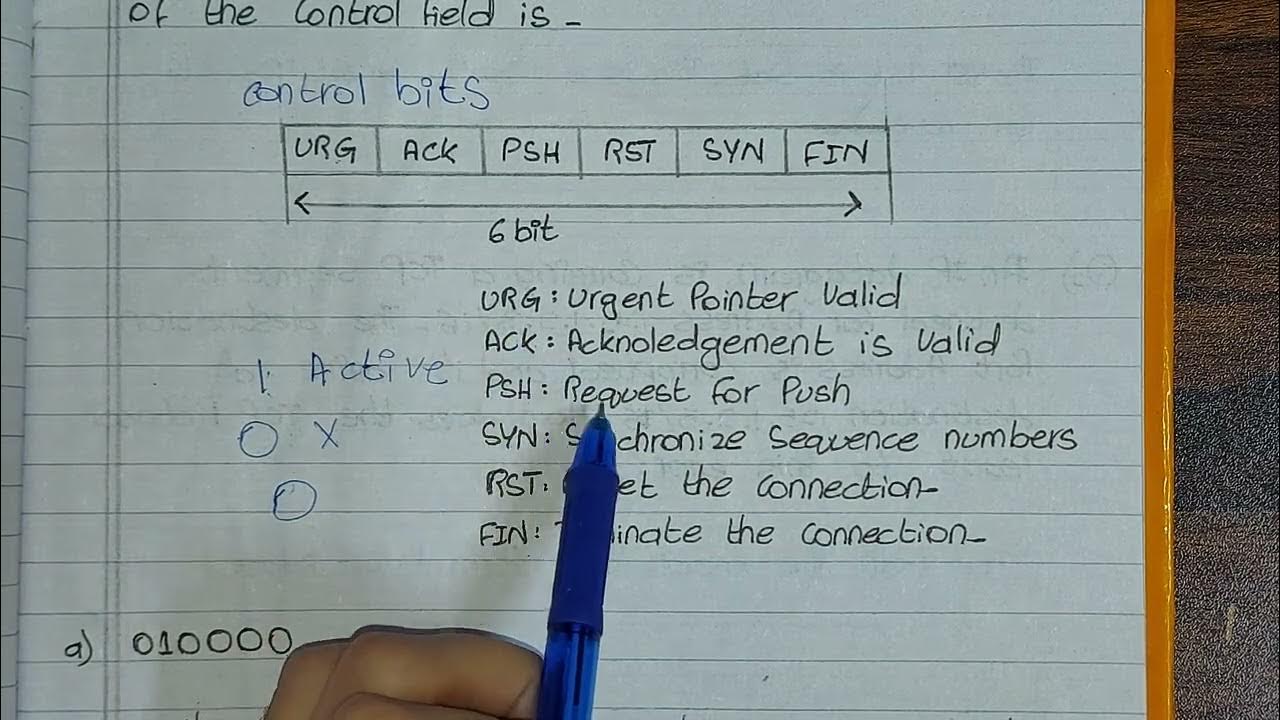 of the control field is -
control bits
URG ACK PSH RST SYN FIN
6 bit
URG: Urgent Pointer Valid
ACK: Acknoledgement is Valid
1 Active
PSH: Request for Push
0 X
SYN: Synchronize Sequence numbers
0
RST: the connection
FIN: the connection
a) 010000